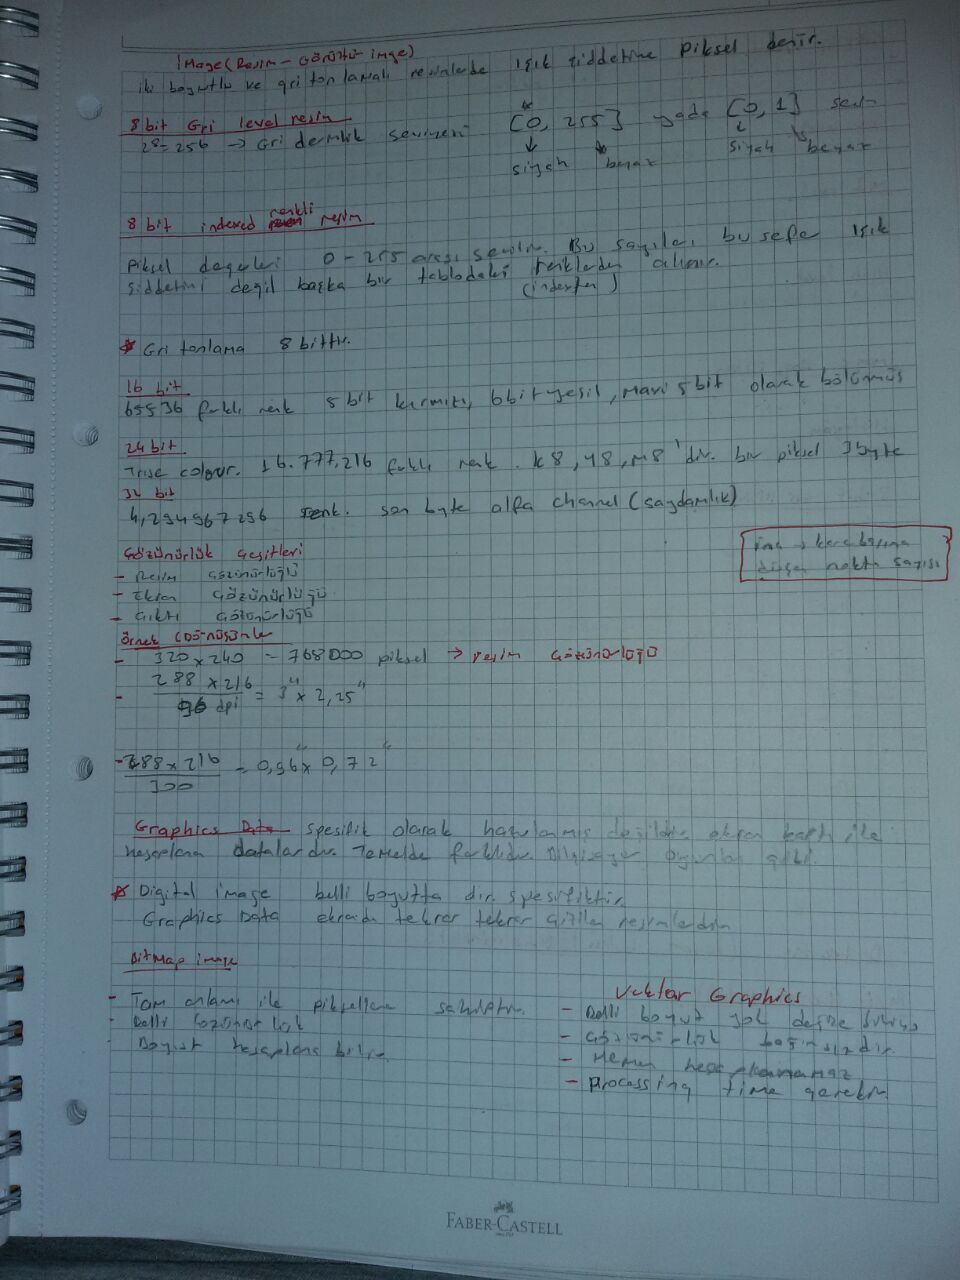 image (Resim - Görüntü - imge)
iki boyutlu ve gri tonlamalı resimlerde ışık şiddetine piksel denir.
8 bit Gri level resim
28=256 → Gri derinlik seviyesi [0, 255] yada [0, 1]
siyah beyaz siyah beyaz
8 bit indexed renkli resim
Piksel değerleri 0-255 arası Bu sayılar bu sefer ışık
şiddetini değil başka bir tablodaki renklerden alınır.
(indexten)
* Gri tonlama 8 bittir.
16 bit
65536 farklı renk 5 bit kırmızı, 6 bit yeşil, mavi 5 bit olarak bölünmüş
24 bit
True colour. 16.777.216 farklı renk. K8, Y8, M8'dir. bir piksel 3 byte
32 bit
4,294967296 renk. son byte alfa channel (saydamlık)
Çözünürlük Çeşitleri
- Resim Çözünürlüğü
- Ekran Çözünürlüğü
- Çıktı Çözünürlüğü
inç → kare başına
düşen nokta sayısı
Örnek (Dönüşümler
- 320 x 240 = 768000 piksel → resim çözünürlüğü
- 288 x 216 / 96 dpi = 3" x 2,25"
- 288 x 216 / 300 = 0,96" x 0,72"
Graphics Data spesifik olarak hazırlanmış değildir ekran kartı ile
hesaplanan datalardır. Temelde farklıdır. Bilgisayar oyunları gibi.
* Digital image belli boyutta dır. spesifiktir.
Graphics Data ekranda tekrar tekrar çizilen resimlerdir.
BitMap image
- Tam anlamı ile piksellere sahiptir.
- Belli Çözünürlük
Boyut hesaplanabilir.
Vektar Graphics
- Belli boyut yok
- Çözünürlük bağımsızdır.
- Hemen hesaplanamaz
- processing time gerekir.
FABER-CASTELL